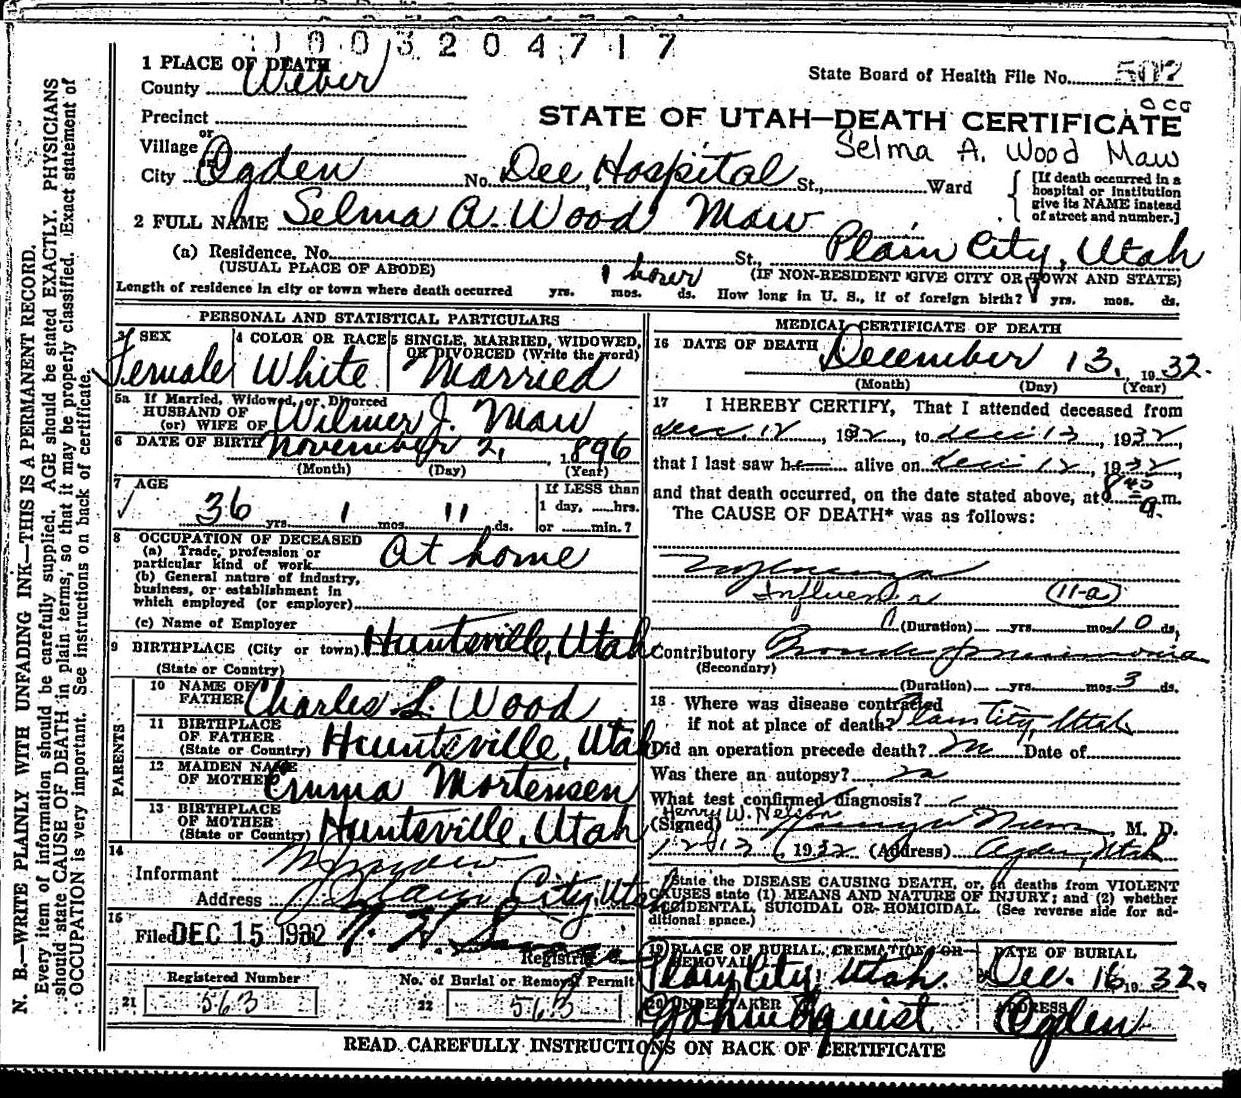 1003204717
1 PLACE OF DEATH
County Weber
State Board of Health File No. 507
Precinct
STATE OF UTAH—DEATH CERTIFICATE
or
Village
Selma A. Wood Maw
City Ogden No. Dee Hospital St., Ward
[If death occurred in a hospital or institution give its NAME instead of street and number.]
2 FULL NAME Selma A. Wood Maw
(a) Residence. No. St., Plain City, Utah
(USUAL PLACE OF ABODE) (IF NON-RESIDENT GIVE CITY OR TOWN AND STATE)
1 hour
Length of residence in city or town where death occurred yrs. mos. ds. How long in U. S., if of foreign birth? yrs. mos. ds.
PERSONAL AND STATISTICAL PARTICULARS
3 SEX Female
4 COLOR OR RACE White
5 SINGLE, MARRIED, WIDOWED, OR DIVORCED (Write the word) Married
5a If Married, Widowed, or Divorced
HUSBAND OF
(or) WIFE OF Wilmer J. Maw
6 DATE OF BIRTH November 2, 1896
(Month) (Day) (Year)
7 AGE
36 yrs. 1 mos. 11 ds.
If LESS than
1 day, hrs.
or min.?
8 OCCUPATION OF DECEASED
(a) Trade, profession or
particular kind of work At home
(b) General nature of industry,
business, or establishment in
which employed (or employer)
(c) Name of Employer
9 BIRTHPLACE (City or town) Huntsville, Utah
(State or Country)
PARENTS
10 NAME OF FATHER Charles L. Wood
11 BIRTHPLACE OF FATHER (State or Country) Huntsville, Utah
12 MAIDEN NAME OF MOTHER Emma Mortensen
13 BIRTHPLACE OF MOTHER (State or Country) Huntsville, Utah
14
Informant
Address Plain City, Utah
15
Filed DEC 15 1932
Registrar
Registered Number
21 563
No. of Burial or Removal Permit
22 563
MEDICAL CERTIFICATE OF DEATH
16 DATE OF DEATH December 13, 1932.
(Month) (Day) (Year)
17 I HEREBY CERTIFY, That I attended deceased from
Dec. 12, 1932, to Dec 13, 1932,
that I last saw h alive on Dec 12, 1932,
and that death occurred, on the date stated above, at 8 45 a. m.
The CAUSE OF DEATH* was as follows:
Influenza
Influenza (11-a)
(Duration) yrs. mos. 10 ds.
Contributory Broncho pneumonia
(Secondary)
(Duration) yrs. mos. 3 ds.
18 Where was disease contracted
if not at place of death? Plain City, Utah
Did an operation precede death? no Date of
Was there an autopsy? no
What test confirmed diagnosis?
Henry W. Nelson
(Signed) M. D.
12/13, 1932 (Address) Ogden, Utah
*State the DISEASE CAUSING DEATH, or, in deaths from VIOLENT
CAUSES state (1) MEANS AND NATURE OF INJURY; and (2) whether
ACCIDENTAL, SUICIDAL OR HOMICIDAL. (See reverse side for additional space.)
19 PLACE OF BURIAL, CREMATION, OR REMOVAL Plain City, Utah.
DATE OF BURIAL Dec. 16 1932.
20 UNDERTAKER
ADDRESS Ogden
READ CAREFULLY INSTRUCTIONS ON BACK OF CERTIFICATE
N. B.—WRITE PLAINLY WITH UNFADING INK—THIS IS A PERMANENT RECORD.
Every item of information should be carefully supplied. AGE should be stated EXACTLY. PHYSICIANS
should state CAUSE OF DEATH in plain terms, so that it may be properly classified. Exact statement of
OCCUPATION is very important. See instructions on back of certificate.